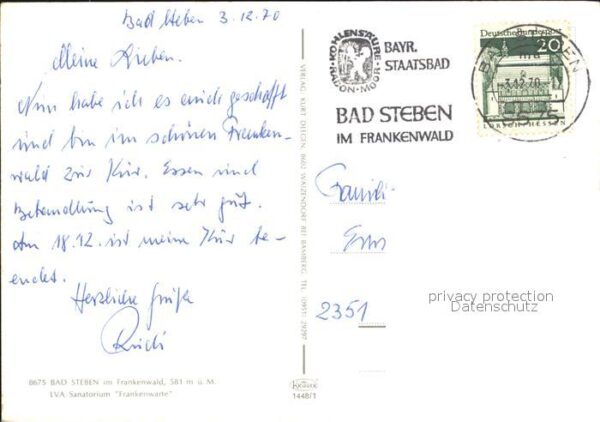 Bad Steben 3.12.70
Meine Lieben.
Nun habe ich es endl. geschafft
und bin im schönen Franken-
wald zur Kur. Essen und
Behandlung ist sehr gut.
Am 18.12. ist meine Kur be-
endet.
Herzliche Grüße
Rudi
8675 BAD STEBEN im Frankenwald, 581 m ü. M.
LVA-Sanatorium "Frankenwarte"
VERLAG KURT DIEGEN 8601 WAIZENDORF BEI BAMBERG, TEL. (0951) 29297
Krüger
1448/1
RADON·KOHLENSÄURE·MOOR
BAYR.
STAATSBAD
BAD STEBEN
IM FRANKENWALD
Deutsche Bundespost
20
LORSCH/HESSEN
BAD STEBEN
-3.12.70
8675
Famili-
2351
privacy protection
Datenschutz